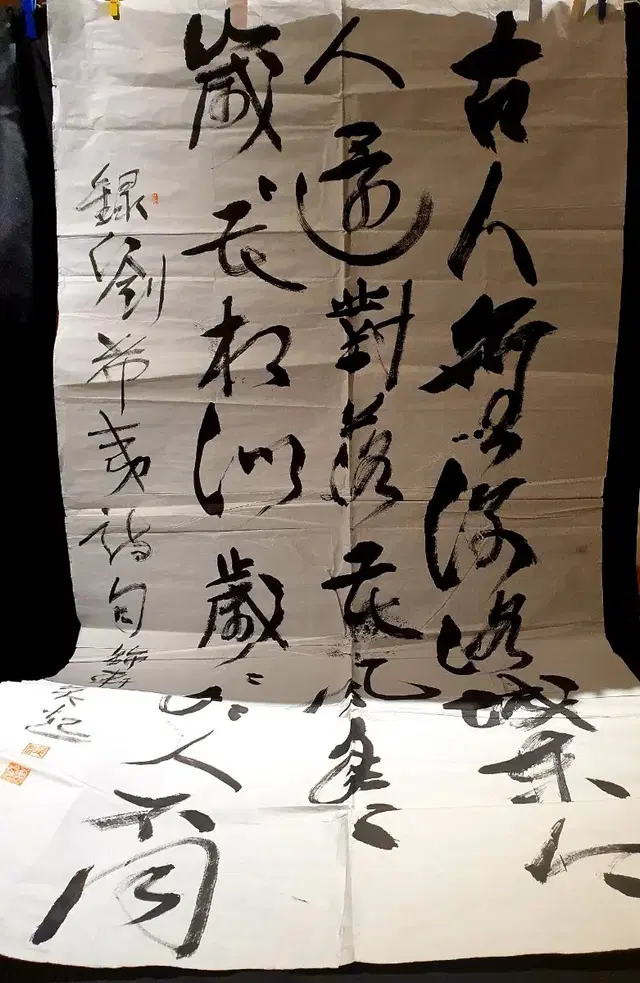 古人無復洛城東今
人還對落花風年〻
歲〻花相似歲〻年〻人不同
錄劉希夷詩句